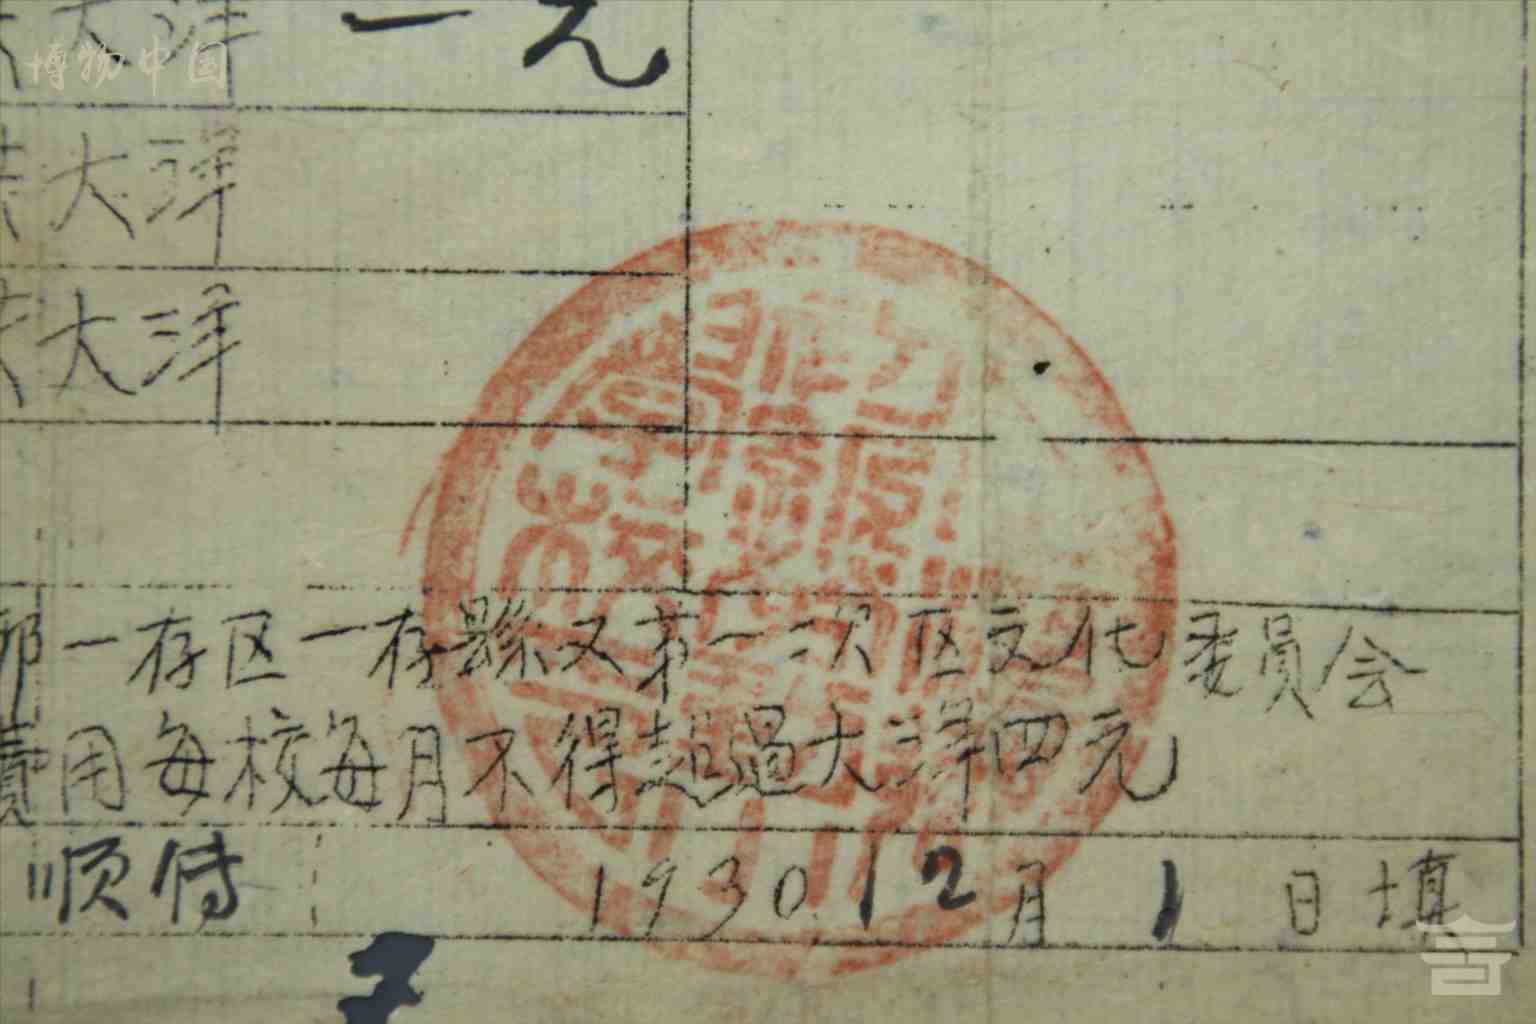 大洋 一元
博物中国
大洋
大洋
部一存区一存縣又第一二次区文化委員会
費用每校每月不得超過大洋四元
順傳 1930.12月1日填